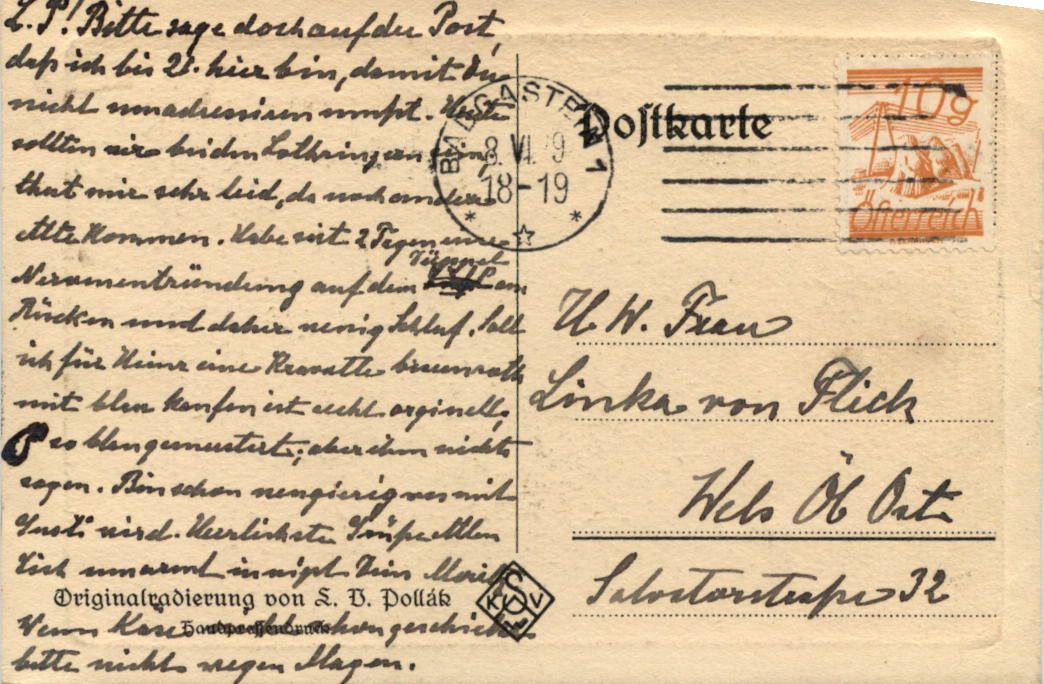 L. P! Bitte sage doch auf der Post,
daß ich bis 21. hier bin, damit Du
nicht umadressieren mußt. Heute
sollten wir bei den Lothringern
that mir sehr leid, da noch andere
Alte kommen. Habe seit 2 Tagen eine
Nervenentzündung auf dem
am
Rücken und daher wenig Schlaf. Soll
ich für Heinz eine Kravatte braunroth
mit blau kaufen ist recht originell,
so blau gemustert, aber ihm nichts
sagen. Bin schon neugierig was mit
Gusti wird. Herzlichste Grüße Allen
Dich umarmt innigst Dein
Originalradierung von L. V. Pollák
Handpressendruck
Wenn Käse schon geschickt
bitte nicht wegen Magen.
BAD GASTEIN 1
8 VI 9
18-19
Postkarte
10g
Österreich
H W. Frau
Linka von Flick
Wels Öb Öst
Salvatorstraße 32
K V